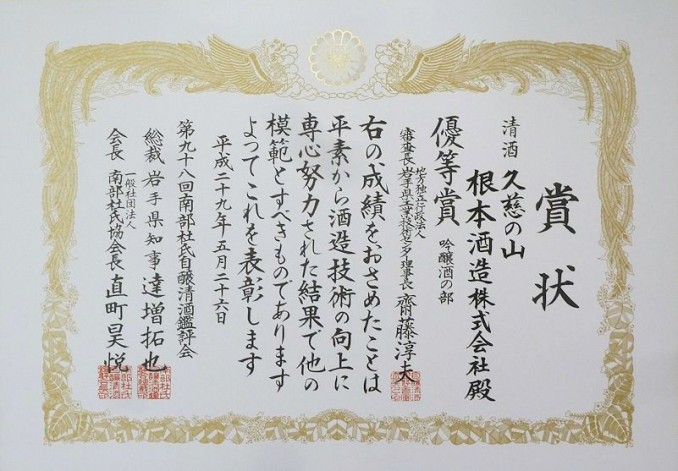 賞状
清酒 久慈の山
根本酒造株式会社殿
優等賞 吟醸酒の部
地方独立行政法人
審査長岩手県工業技術センター理事長 齋藤淳夫
右の成績をおさめたことは
平素から酒造技術の向上に
専心努力された結果で他の
模範とすべきものであります
よってこれを表彰します
平成二十九年五月二十六日
第九十八回南部杜氏自醸清酒鑑評会
総裁 岩手県知事 達増拓也
一般社団法人
会長 南部杜氏協会会長 直町昊悦